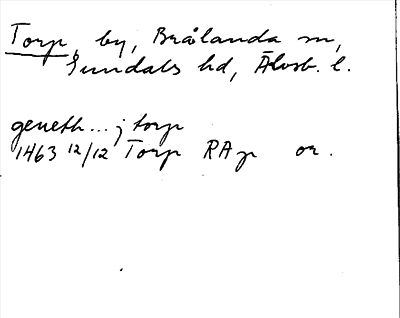 Torp, by, Brålanda sn,
Sundals hd, Älvsb. l.
geneth... j torp
1463 12/12 Torp RAp or.